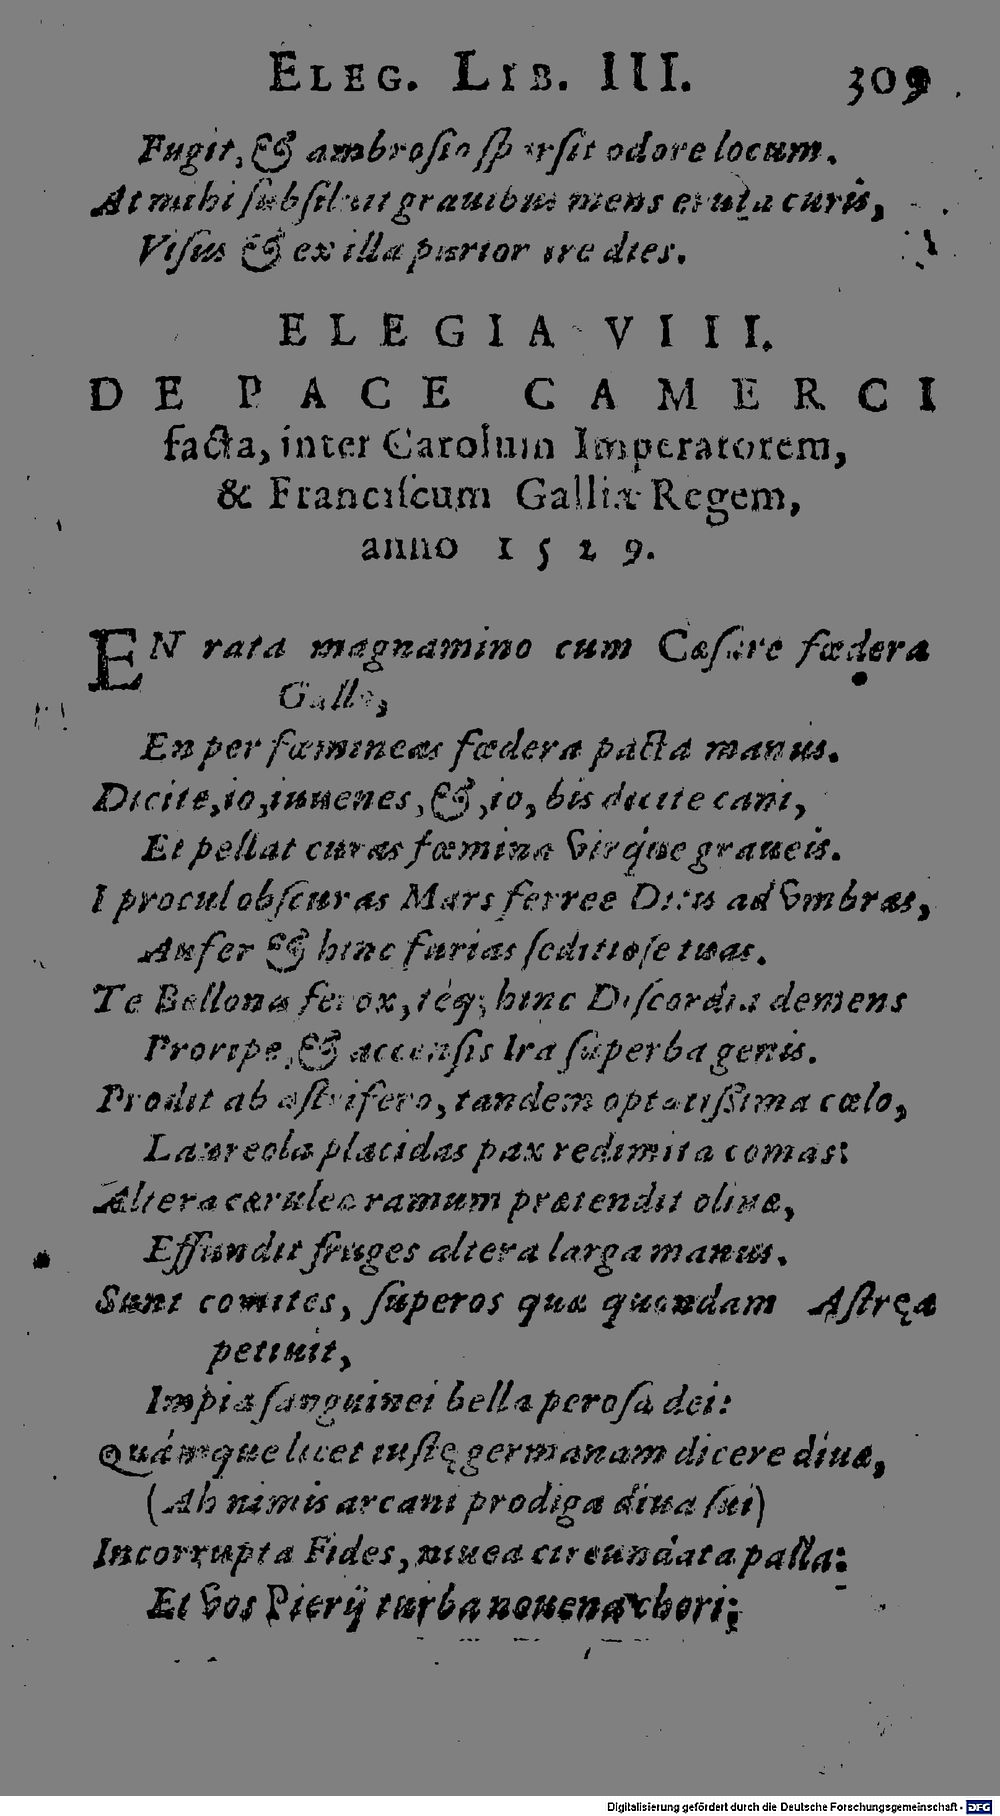 ELEG. LIB. III. 309
Fugit, & ambrosio sparsit odore locum.
At mihi subsiluit grauibus mens eruta curis,
Visus & ex illa purior ire dies.
ELEGIA VIII.
DE PACE CAMERCI
facta, inter Carolum Imperatorem,
& Franciſcum Galliæ Regem,
anno 1529.
EN rata magnamino cum Cæſare fœdera
Gallo,
En per fœmineas fœdera pacta manus.
Dicite, io, iuuenes, &, io, bis dicite cani,
Et pellat curas fœmina virque graueis.
I procul obſcuras Mars ferree Ditis ad vmbras,
Aufer & hinc furias ſeditioſe tuas.
Te Bellona ferox, téq; hinc Diſcordia demens
Proripe, & accenſis Ira ſuperba genis.
Prodit ab aſtrifero, tandem optatiſſima cœlo,
Laureola placidas pax redimita comas:
Altera cærulea ramum prætendit oliuæ,
Effundit fruges altera larga manus.
Sunt comites, ſuperos quæ quondam Aſtręa
petiuit,
Impia ſanguinei bella peroſa dei:
Quámque licet iuſtę germanam dicere diuæ,
(Ah nimis arcani prodiga diua ſui)
Incorrupta Fides, niuea circundata palla:
Et vos Pierij turba nouena chori;
Digitalisierung gefördert durch die Deutsche Forschungsgemeinschaft - DFG